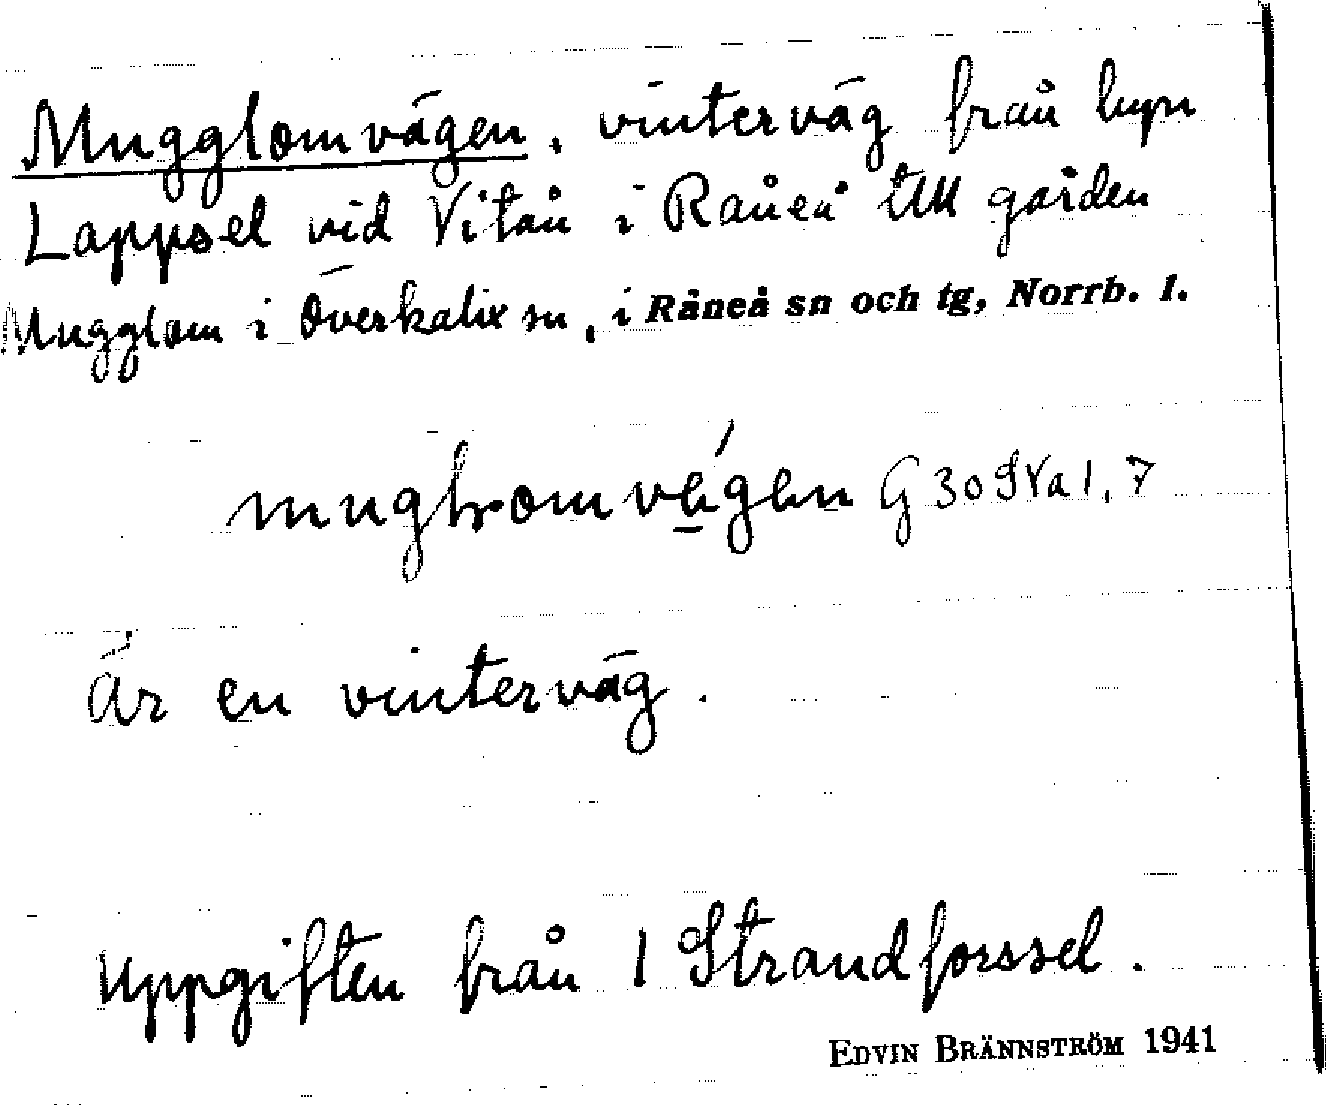 Mugglomvägen, vinterväg från byn
Lappsel vid Vitån i Råneå till gården
Mugglom i Överkalix sn, i Råneå sn och tg, Norrb. l.
G 30 Va 1, 7
Är en vinterväg.
Uppgiften från 1 Strandforssel.
EDVIN BRÄNNSTRÖM 1941